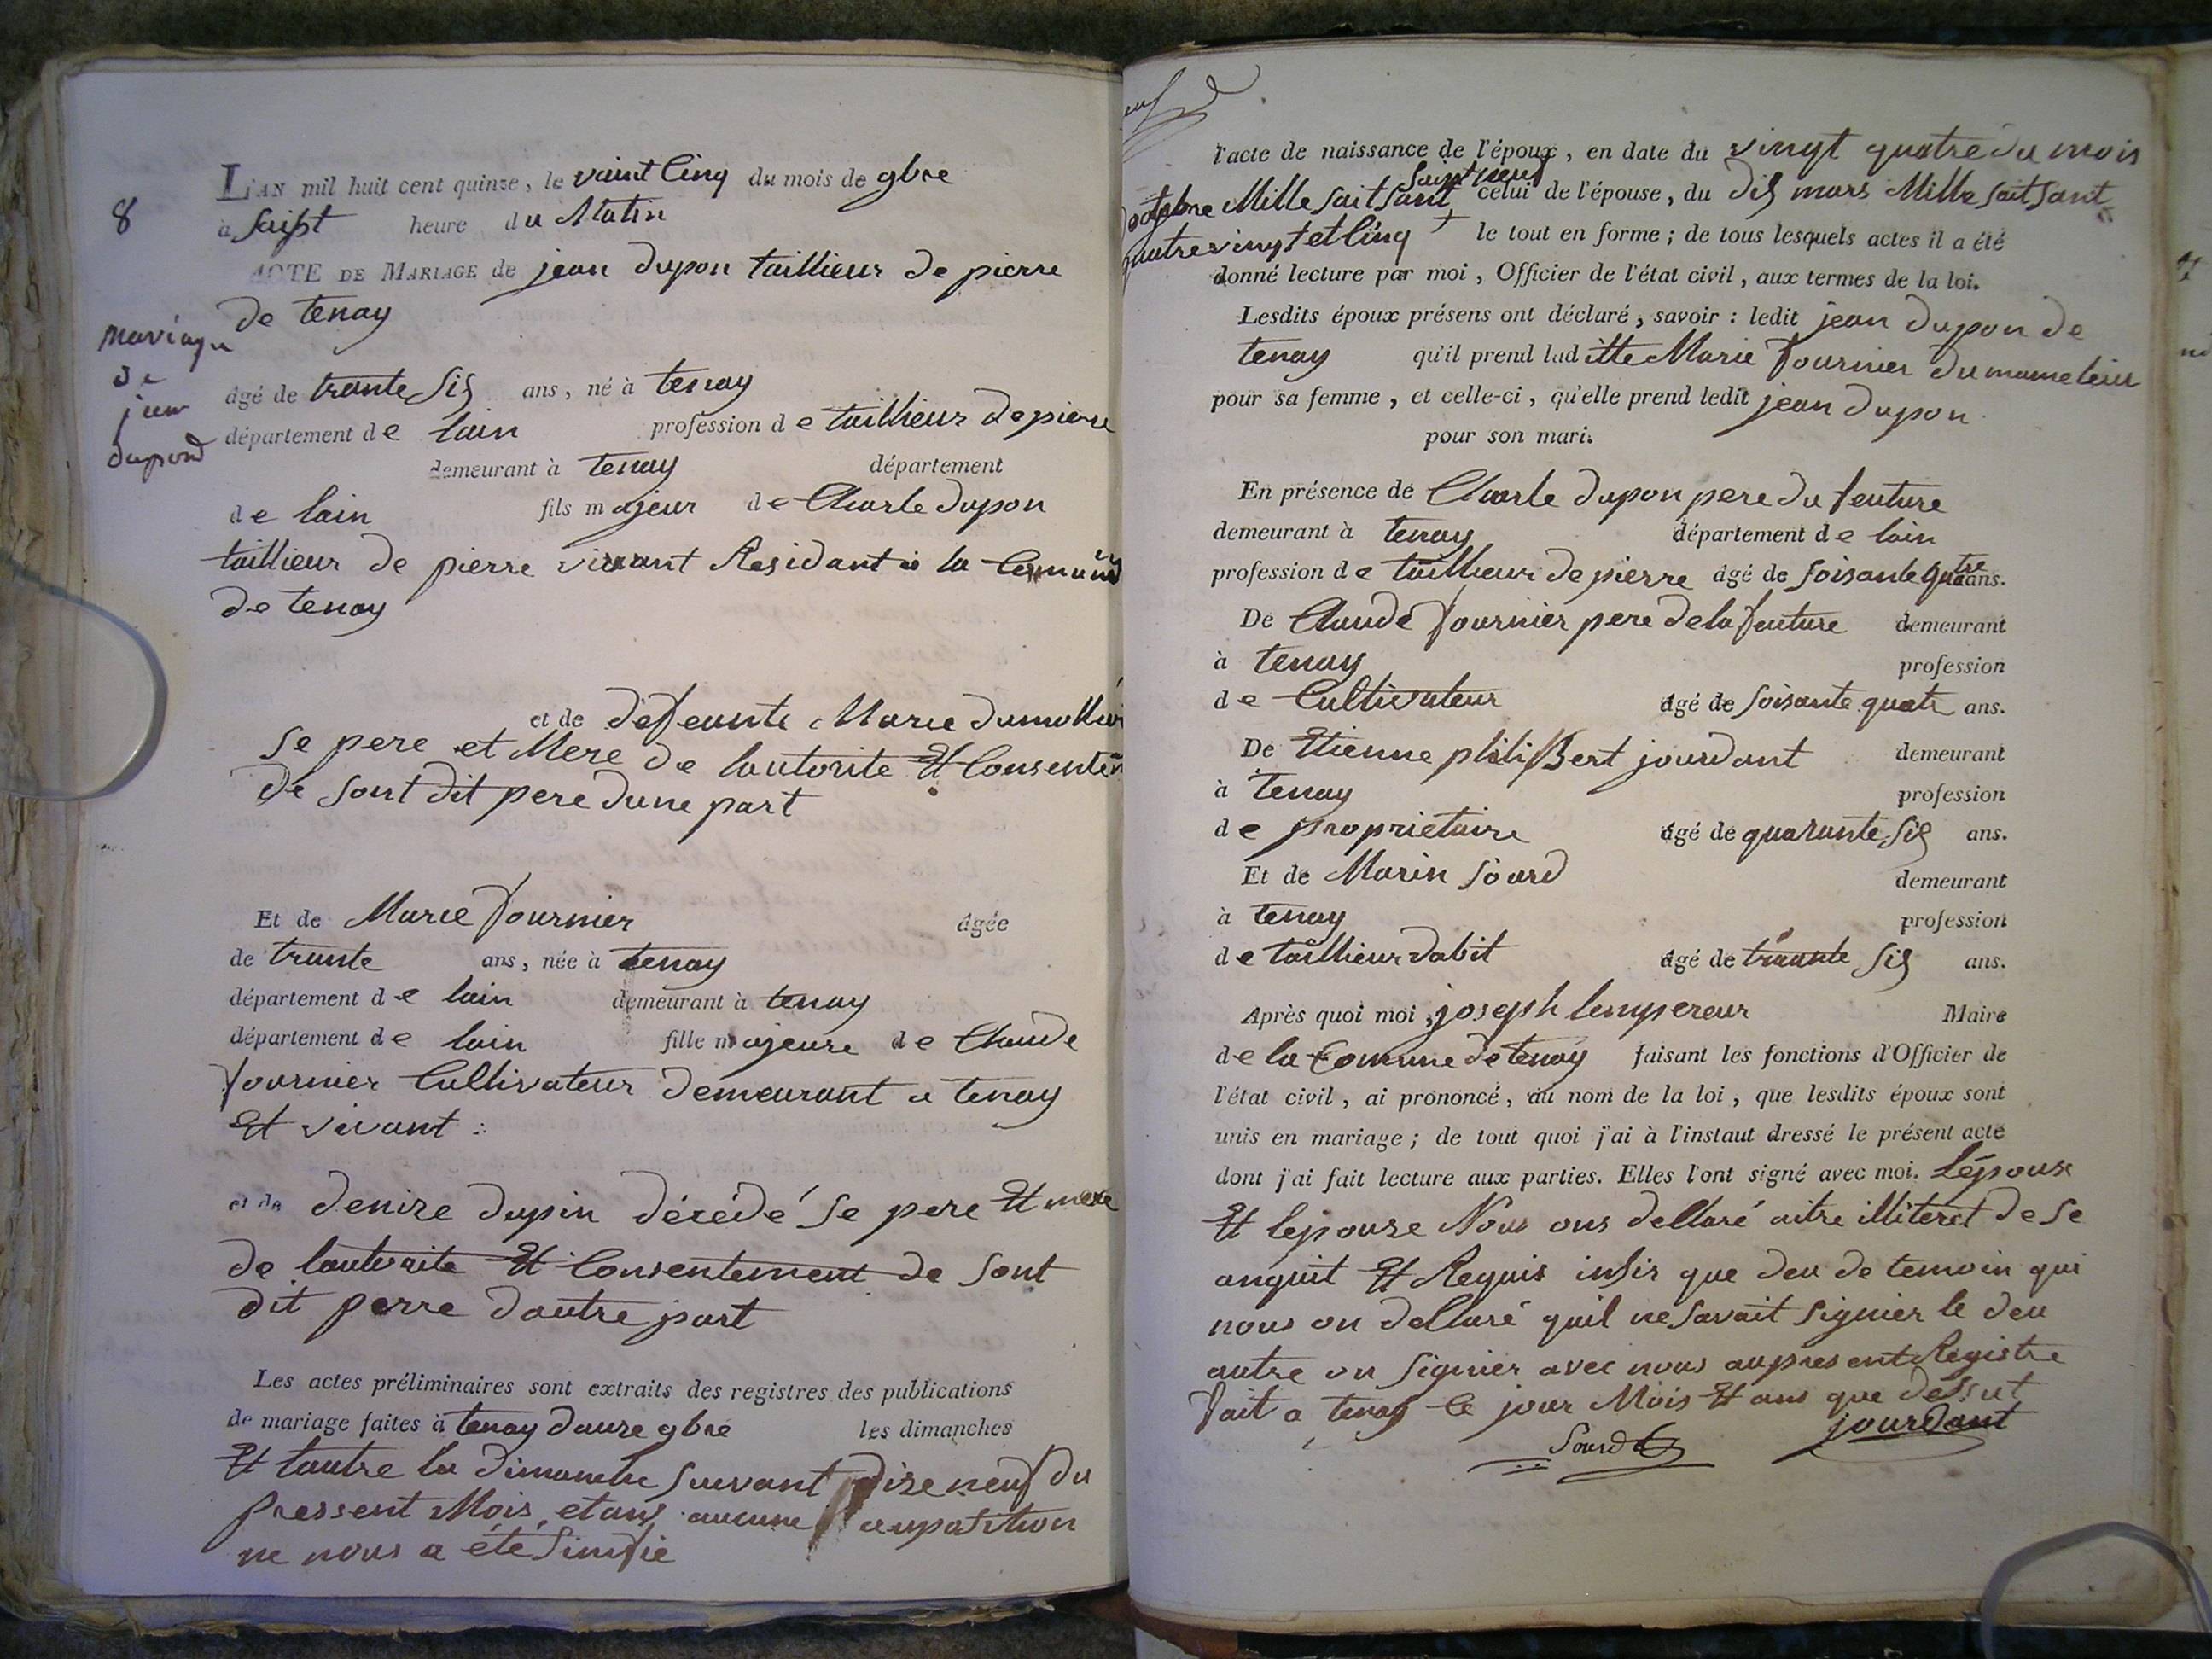 8
mariage
de
jean
dupond
L'AN mil huit cent quinze, le vaint Cinq du mois de 9bre
à Saipt heure du Matin
ACTE DE MARIAGE de jean dupon taillieur de pierre
de tenay
âgé de trante Sis ans, né à tenay
département de lain profession de taillieur de piere
demeurant à tenay département
de lain fils majeur de Charle dupon
taillieur de pierre vivant Residant a la Comune
de tenay
et de defeunte Marie dumollier
Se pere et Mere de lautorite Et Consentem
de sont dit pere dune part
Et de Marie fournier âgée
de trante ans, née à tenay
département de lain demeurant à tenay
département de lain fille majeure de Claude
fournier Cultivateur demeurant a tenay
Et vivant :
et de denise dupin décédé Se pere Et mere
de lautorite Et Consentement de sont
dit perre dautre part
Les actes préliminaires sont extraits des registres des publications
de mariage faites à tenay douze 9bre les dimanches
Et lautre la dimanche suivant dize neuf du
pressent Mois et ans aucune aupatition
ne nous a été Sinifié
l'acte de naissance de l'époux, en date du vingt quatre du mois
Saint neuf
doctobre Mille Sait Sant celui de l'épouse, du dis mars Mille Sait Sant
quatre vingt et Cinq le tout en forme ; de tous lesquels actes il a été
donné lecture par moi, Officier de l'état civil, aux termes de la loi.
Lesdits époux présens ont déclaré, savoir : ledit jean dupon de
tenay qu'il prend laditte Marie fournier du mame leiu
pour sa femme, et celle-ci, qu'elle prend ledit jean dupon
pour son mari.
En présence de Charle dupon pere du feuture
demeurant à tenay département de lain
profession de taillieur de pierre âgé de soisante quatre ans.
De Claude fournier pere dela feuture demeurant
à tenay profession
de Cultivateur âgé de soisante quatr ans.
De Etienne philiBert jourdant demeurant
à tenay profession
de proprietaire âgé de quarante sis ans.
Et de Marin Sourd demeurant
à tenay profession
de taillieur dabit âgé de trante Sis ans.
Après quoi moi, joseph lempereur Maire
de la Comune de tenay faisant les fonctions d'Officier de
l'état civil, ai prononcé, au nom de la loi, que lesdits époux sont
unis en mariage ; de tout quoi j'ai à l'instant dressé le présent acte
dont j'ai fait lecture aux parties. Elles l'ont signé avec moi. Lépouse
Et lepouse Nous ons dellaré aitre illiteret de Se
anquit Et Requis insis que deu de temoin qui
nous on dellaré quil ne savait signier le deu
autre on signier avec nous au present Registre
fait a tenay le jour Mois Et ans que dessut
Sourd jourdant